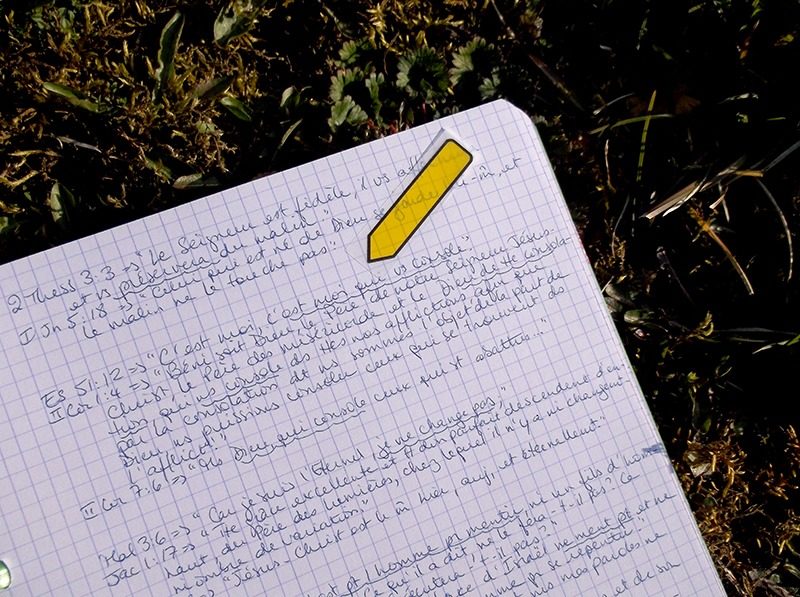 2 Thess 3:3 => "Le Seigneur est fidèle, il vs
et vs préservera du malin."
I Jn 5:18 => "Celui qui est né de Dieu se garde lui-m̂, et
le malin ne le touche pas"
Es 51:12 => "C'est moi, c'est moi qui vs console"
II Cor 1:4 => "Béni soit Dieu, le Père de notre Seigneur Jésus-
Christ, le Père des miséricorde et le Dieu de tte consola-
tion, qui ns console ds ttes nos afflictions, afin que
par la consolation dt ns sommes l'objet de la part de
Dieu, ns puissions consoler ceux qui se trouvent ds
l'afflict°!"
II Cor 7:6 => "Ms Dieu, qui console ceux qui st abattus..."
Mal 3:6 => "Car je suis l'Eternel, je ne change pas."
Jac 1:17 => "Tte grâce excellente et tt don parfait descendent d'en-
haut, du Père des lumières, chez lequel il n'y a ni changent-
ni ombre de variation."
=> "Jésus-Christ est le m̂ hier, auj, et éternellement"
est pt 1 homme pr mentir, ni un fils d'homme
Ce qu'il a dit, ne le fera-t-il pas? Ce
exécutera-t-il pas?"
d'Israël ne ment pt et ne
homme pr se repentir."
mes paroles ne